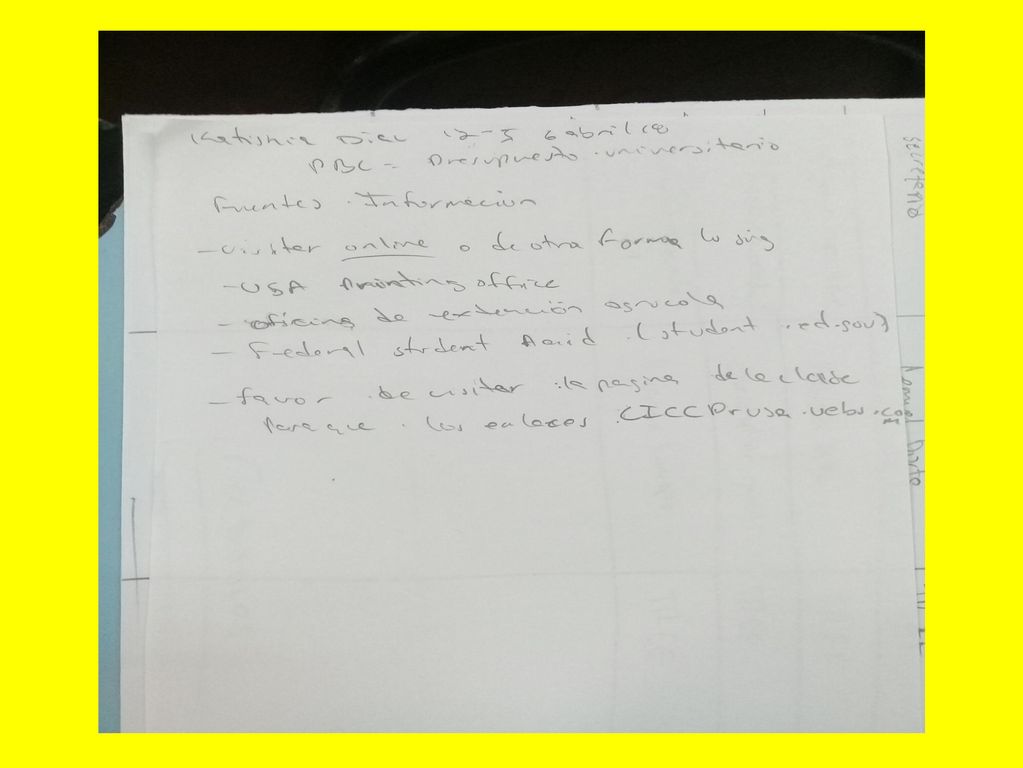 Katishia Diaz 12-5 6 abril 18
PBC = Presupuesto universitario
Fuentes Informacion
- visitar online o de otra forma lo sig
- USA Printing office
- oficina de extención agricola
- Federal student Aaid (student.ed.gov)
- favor de visitar la pagina de la clase
para que los enlaces CICCPrusa.webs.com
Secretaria
Manual